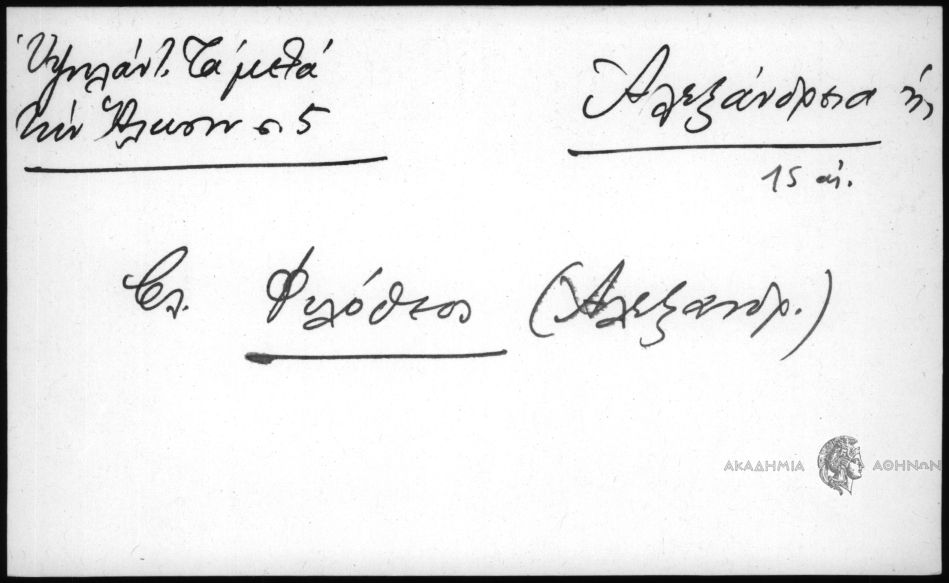 Ὑψηλάντ. Τά μετά
τήν Ἅλωσιν σ. 5
Ἀλεξάνδρεια ἡ
15 αἰ.
Βλ. Φιλόθεος (Ἀλεξανδρ.)
ΑΚΑΔΗΜΙΑ ΑΘΗΝΩΝ